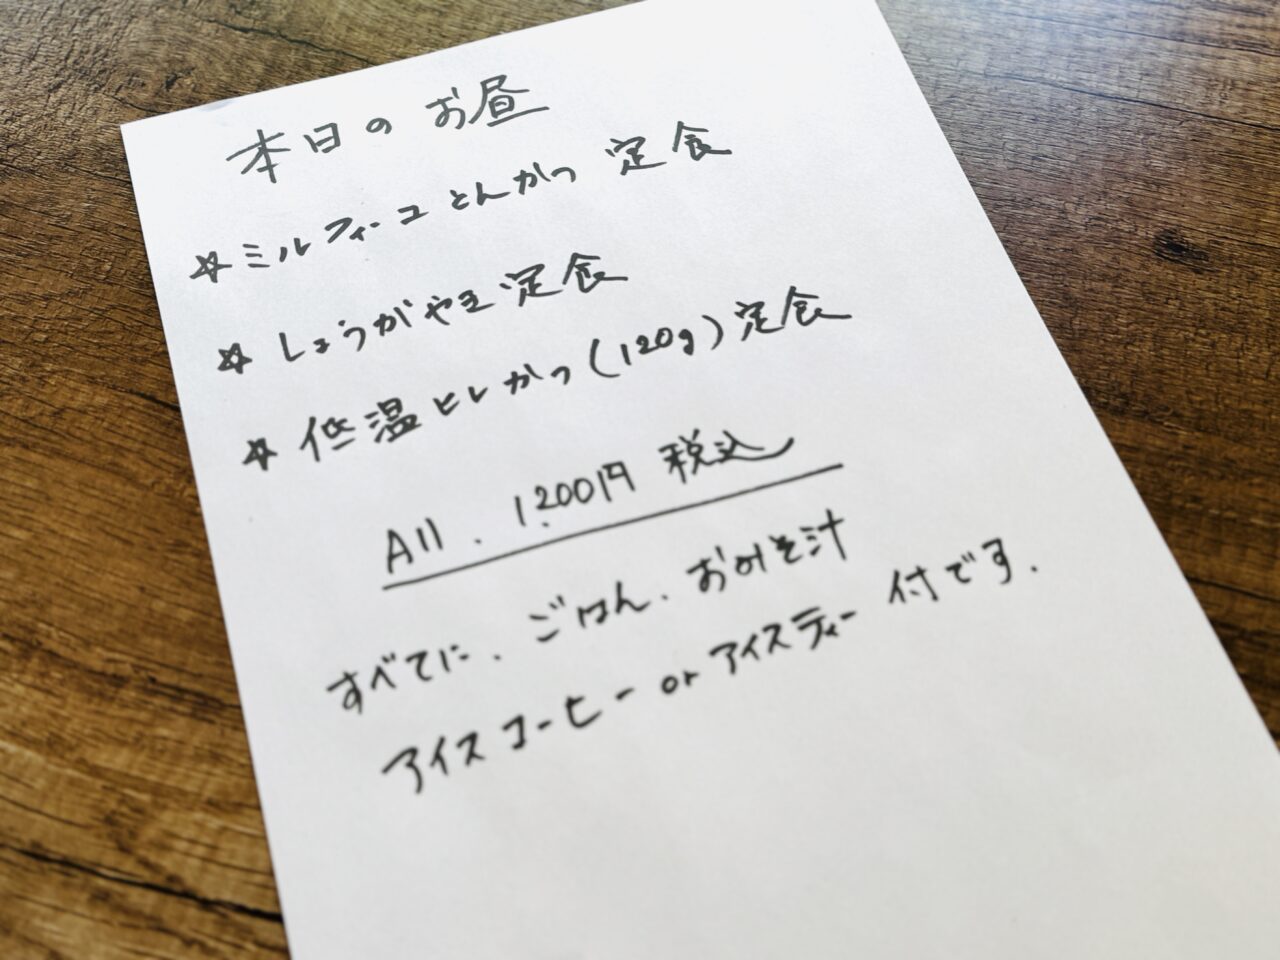 本日のお昼
☆ミルフィーユとんかつ 定食
☆しょうがやき定食
☆低温ヒレかつ(120g)定食
All. 1,200円 税込
すべてに、ごはん、おみそ汁
アイスコーヒー or アイスティー 付です.